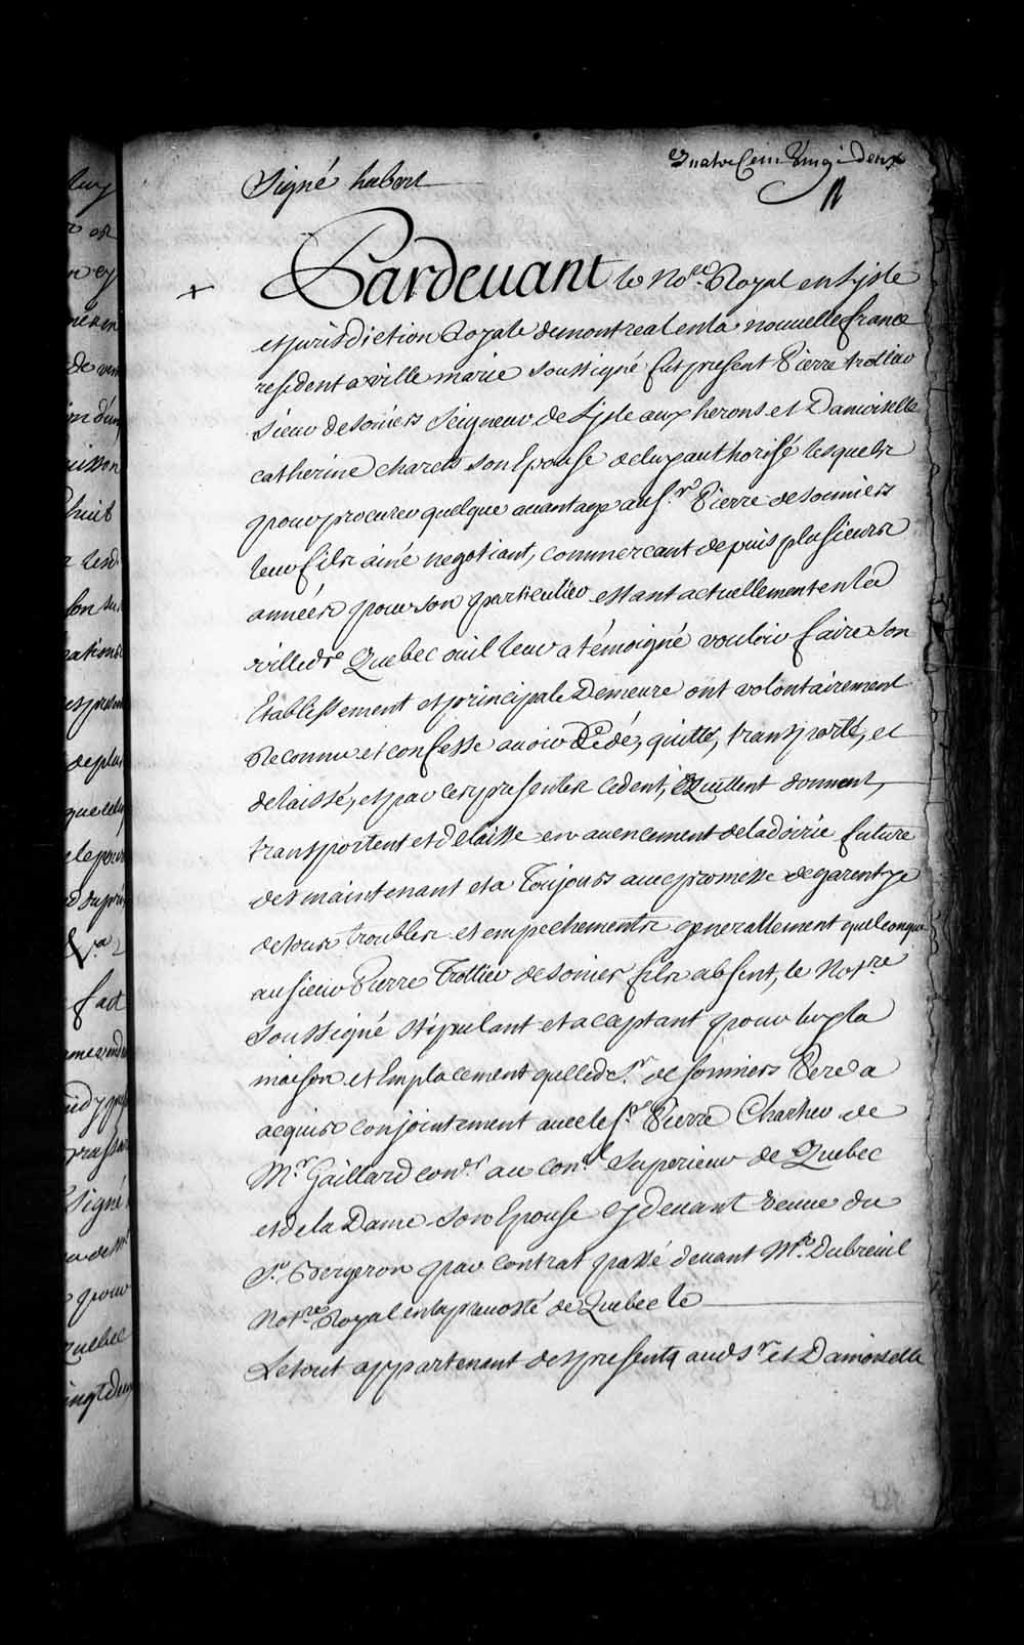 Quatre Cent Vingt Deux
Signé habert
Pardeuant le Nore. Royal en L'jsle
et jurisdiction Royale demontreal enla nouuelle france
resident a ville marie soussigné fut present Pierre trottier
sieur desoniers seigneur de L'jsle aux herons et Damoiselle
catherine charets son Epouse deluy authorisé lesquels
pour procurer quelque auantage au sr. Pierre desonniers
leur fils ainé negotiant, commercant depuis plusieurs
années pour son particulier estant actuellement en la
ville de Quebec ou il leur a témoigné vouloir faire son
Etablissement et principale Demeure ont volontairement
Reconnu et confessé auoir Cédé, quitté, transporté, et
delaissé, et par ces presentes cedent, Quittent donnent,
transportent et delaisse en auencement deladoirie future
des maintenant et a Toujours auec promesse de garentye
detous troubles et empechements generallement quelconque
au sieur Pierre Trottier desonier fils absent, le Notre
soussigné stipulant et acaptant pour luy la
maison et Emplacement que led Sr. desonniers Pere a
acquis conjointement auec le Sr. Pierre Chartier de
Mr. Gaillard conser au conel Superieur de Quebec
et de la Dame son Epouse cy deuant veuue du
Sr. Bergeron par contrat passé deuant Me. Dubreuil
Notre Royal en la preuosté de Quebec le
Le tout appartenant des presents aud sr et Damoiselle
luy
de ven
huit
fait
signé
pour
Quebec